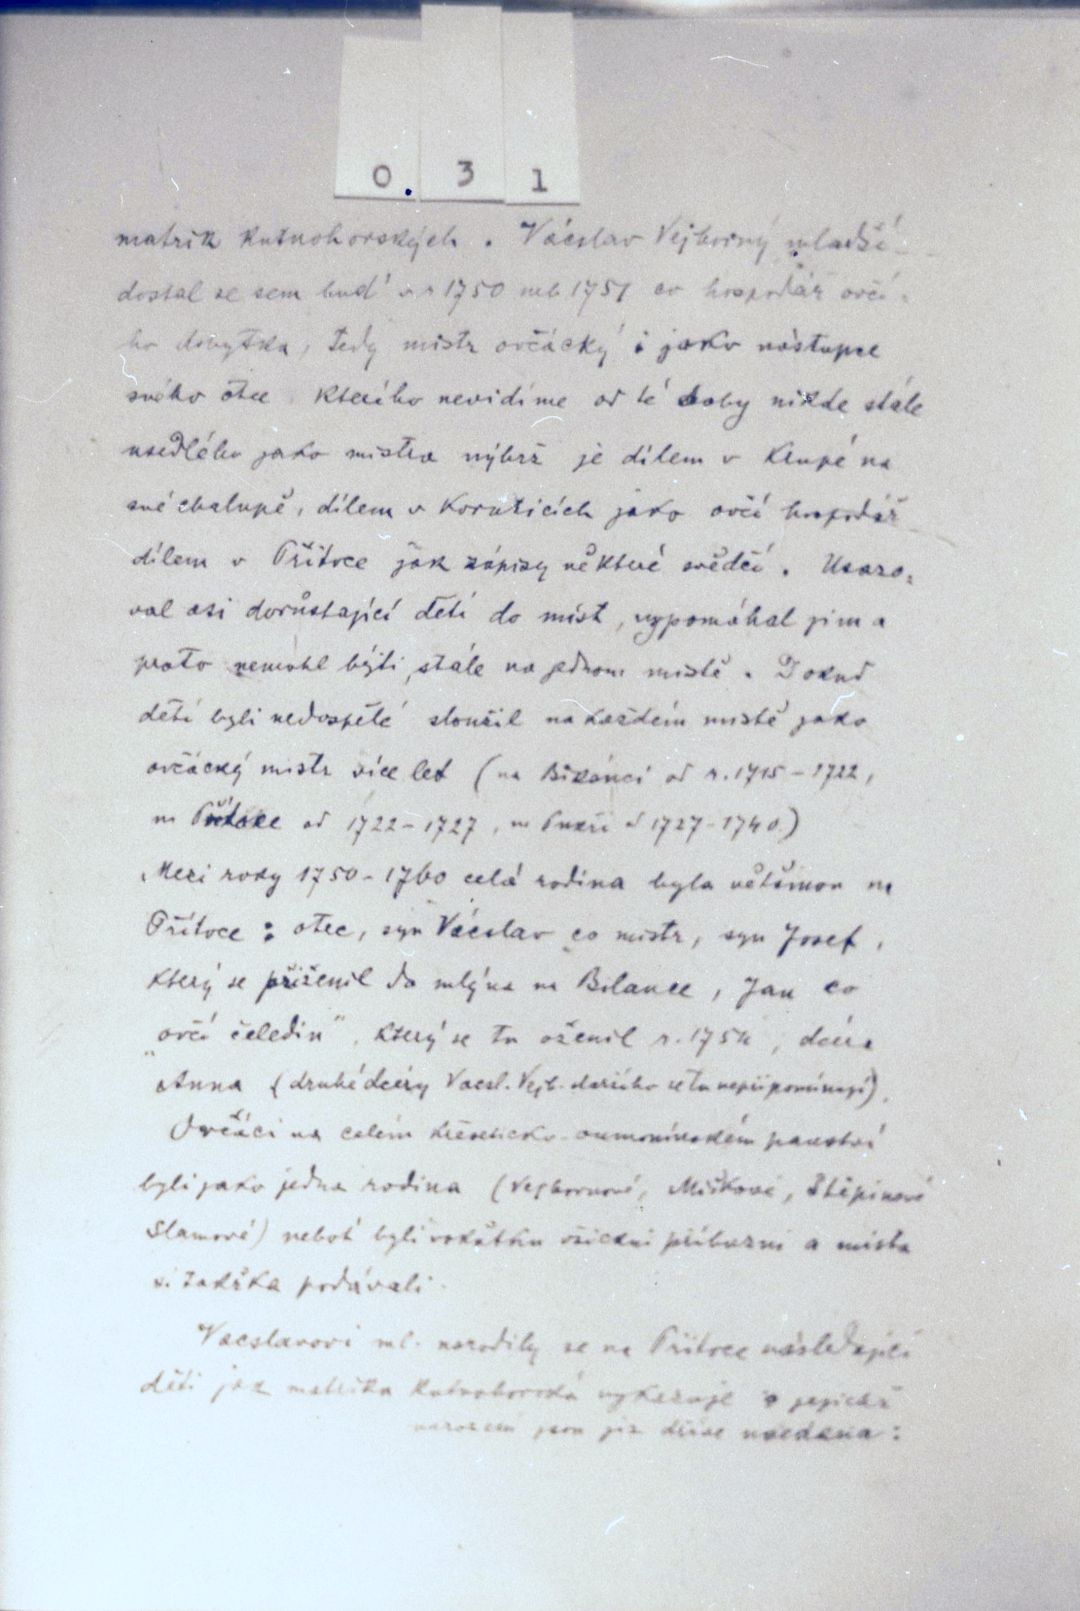 0.31
matrik Kutnohorských. Vácslav Vejborný mladší
dostal se sem buď v r 1750 neb 1751 co hospodář ovčí-
ho dobytka, tedy mistr ovčácký i jako nástupce
svého otce kterého nevidíme od té doby nikde stále
usedlého jako mistra nýbrž je dílem v Krupé na
své chalupě, dílem v Korušicích jako ovčí hospodář
dílem v Přítoce jak zápisy některé svědčí. Usazo-
val asi dorůstající děti do míst, vypomáhal jim a
proto nemohl býti stále na jednom místě. Dokud
děti byli nedospělé sloužil na každém místě jako
ovčácký mistr více let (na Bikánci od r. 1715-1722,
na Přítoce od 1722-1727, na od 1727-1740.)
Mezi roky 1750-1760 celá rodina byla většinou na
Přítoce: otec, syn Vácslav co mistr, syn Josef,
který se přiženil do mlýna na Bilance, Jan co
„ovčí čeledín", který se tu oženil r. 1754, dcera
Anna (druhé dcery Vacsl. Vejb. staršího se tu nepřipomínají).
Ovčáci na celém křeseticko-oumonínském panství
byli jako jedna rodina (Vejbornové, Miškové, Štěpínové
Slamové) neboť byli vokátku všickni příbuzní a místa
si zakátka podávali.
Vacslavovi ml. narodily se na Přítoce následující
děti jak matrika kutnohorská vykazuje a jejichž
narození jsou již dříve uvedena: